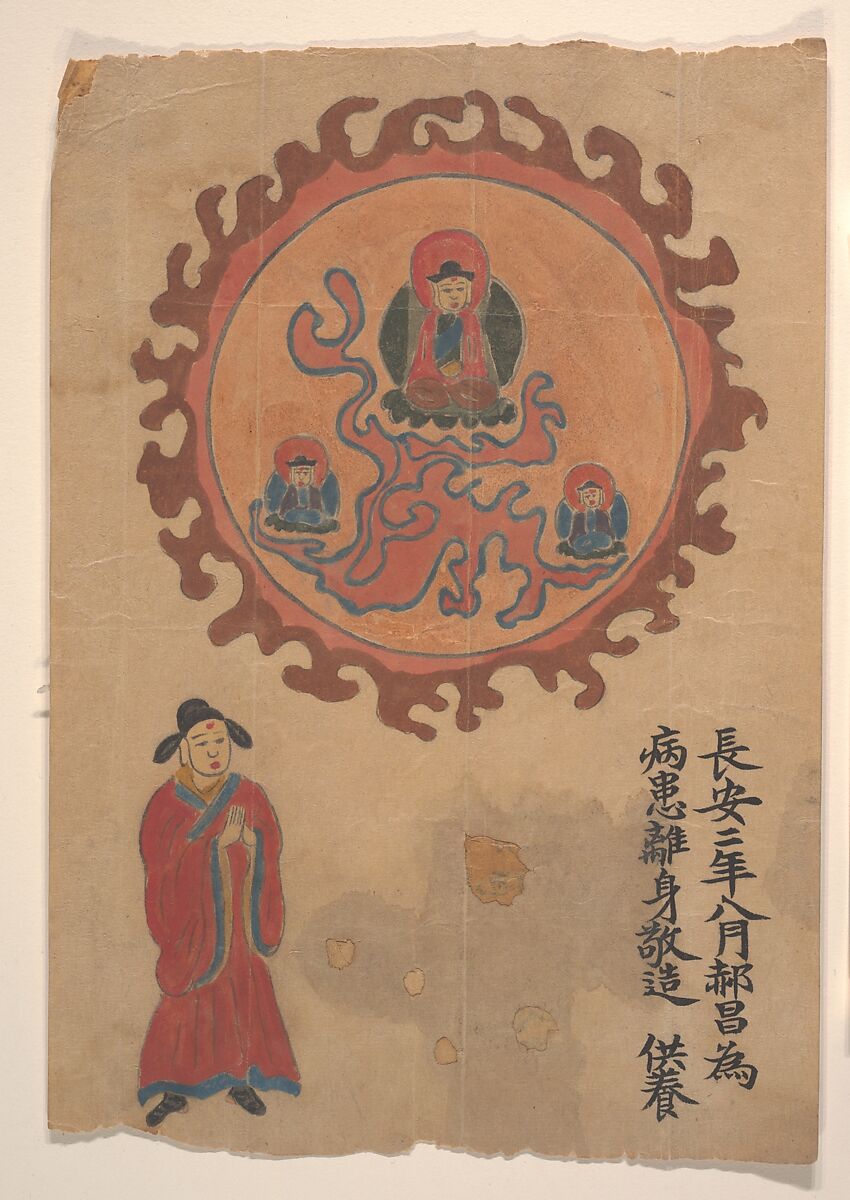 長安二年八月郝昌為
病患離身敬造 供養